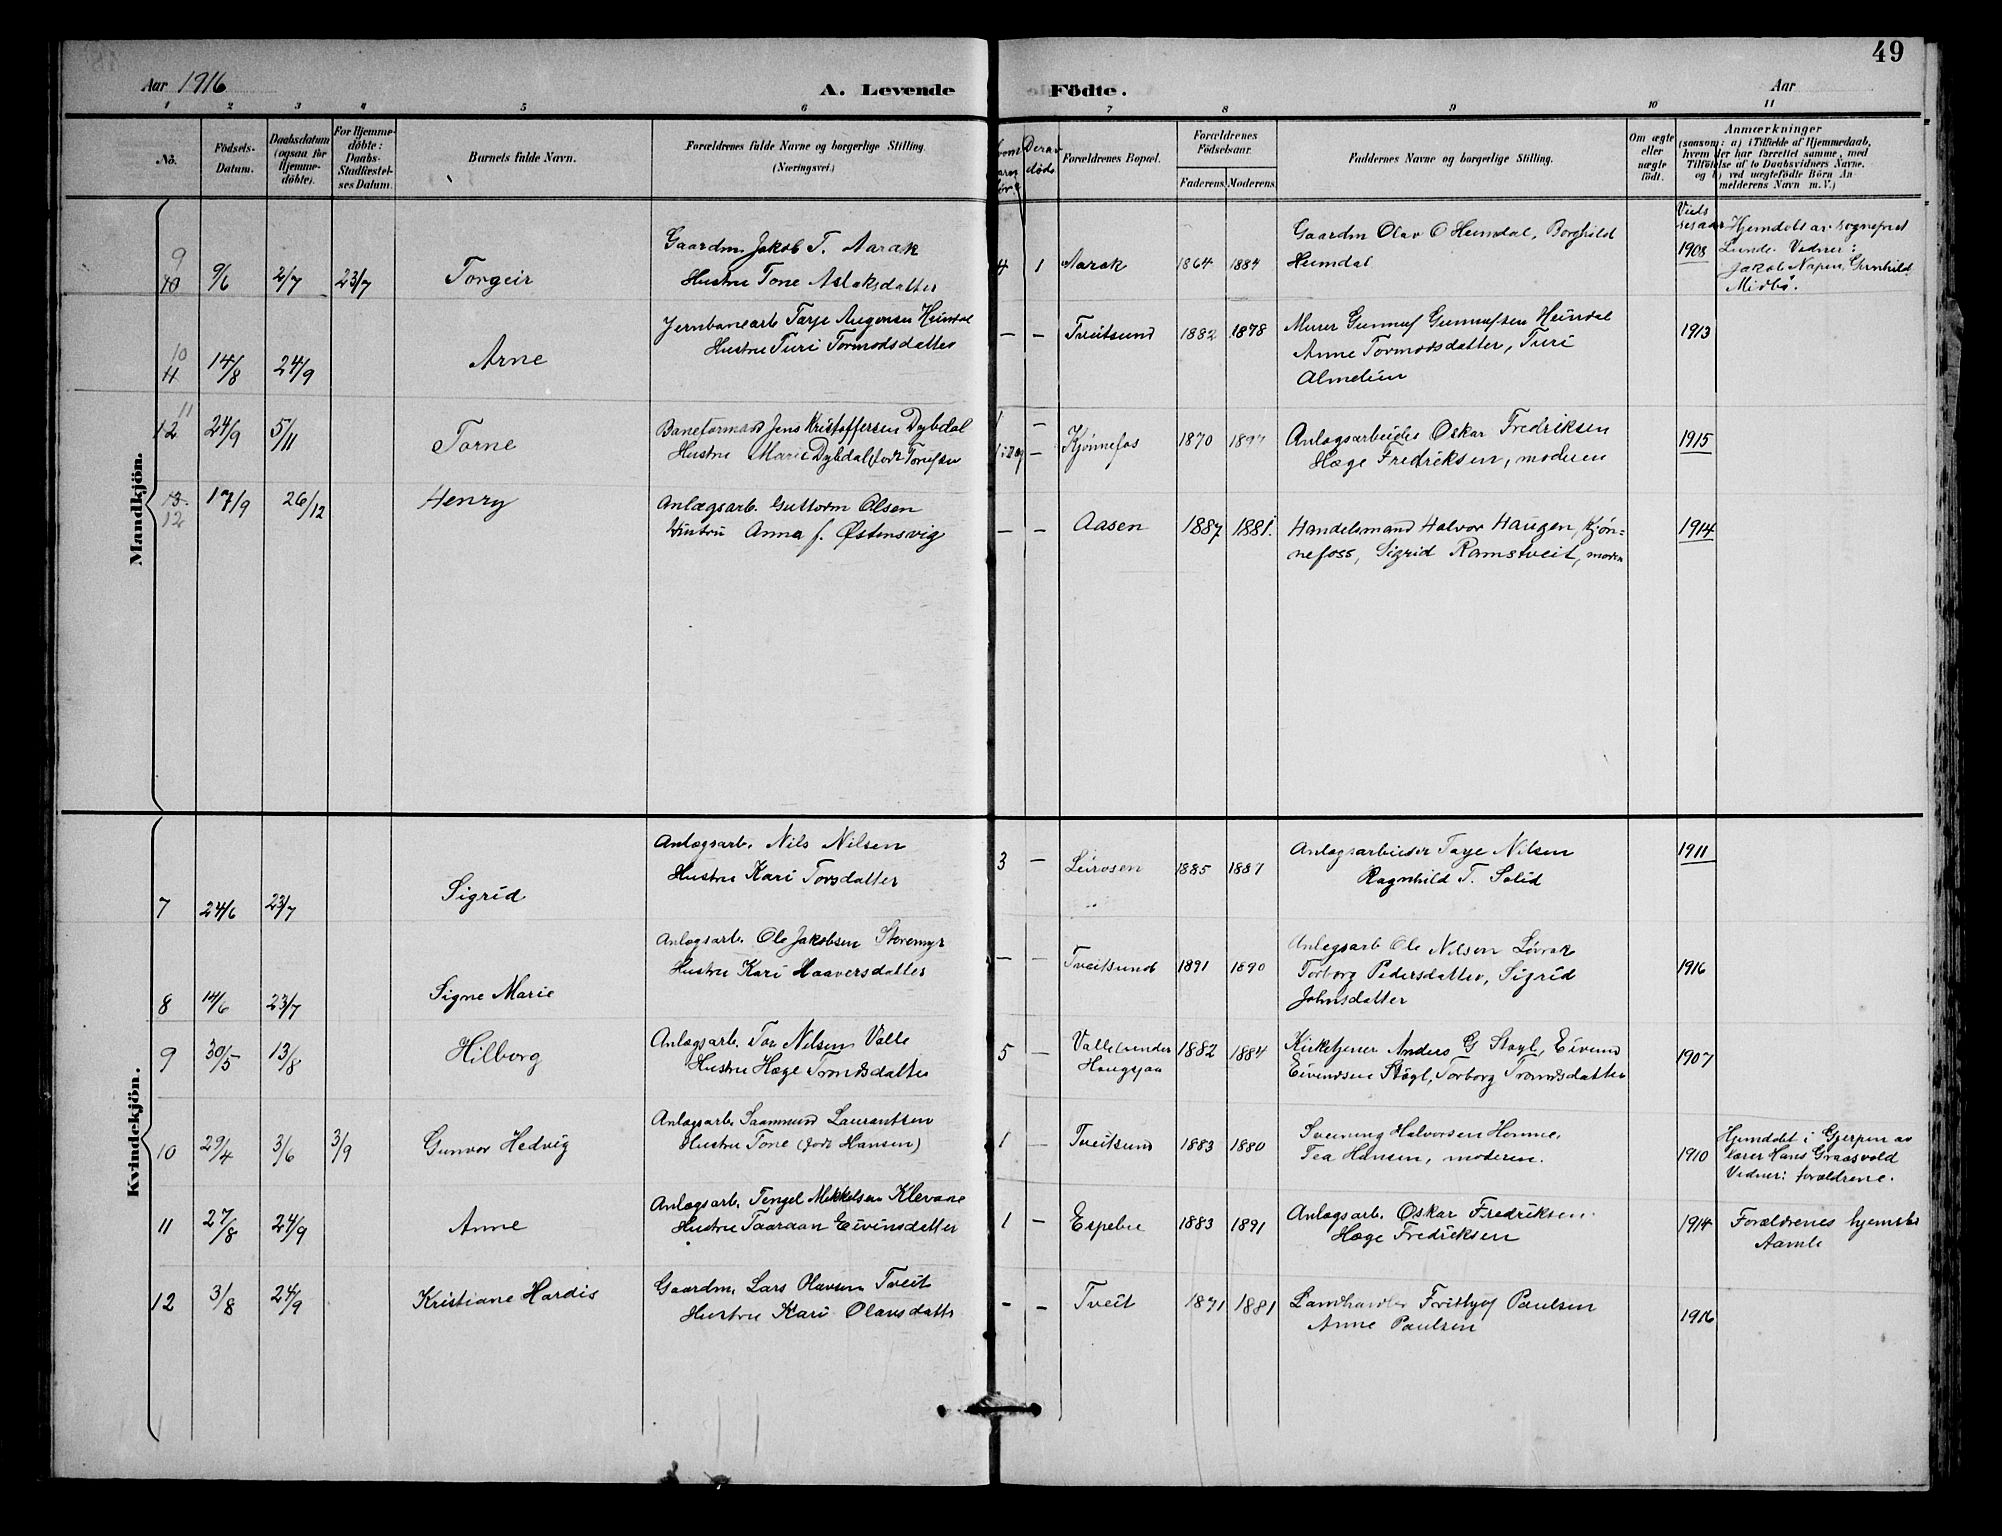 49
Aar 1916
A. Levende
Födte.
Aar
1 2 3 4 5 6 7 8 9 10 11
No.
Födsels-Datum.
Daabsdatum (ogsaa for Hjemme-döbte).
For Hjemme-döbte: Daabs-Stadfæstel-ses Datum.
Barnets fulde Navn.
Forældrenes fulde Navne og borgerlige Stilling.
(Næringsvei.)
Forældrenes Bopæl.
Forældrenes Födselsaar.
Faderens Moderens
Faddernes Navne og borgerlige Stilling.
Om ægte eller uægte födt.
Anmærkninger
(saasom: a) i Tilfælde af Hjemmedaab,
hvem der har forrettet samme, med
Tilföielse af to Daabsvidners Navne.
og b) ved uægtefödte Börn An
melderens Navn m. V.)
Mandkjön.
9
10 9/6 2/7 23/7 Torgeir
Gaardm Jakob T. Aarak
Hustru Tone Aslaksdatter
4 1 Aarak 1864 1884
Gaardm Olav O Heimdal, Borghild
Heimdal
1908
Hjemdøbt av sognepret
Lunde. Vidner:
Jakob Napen, Gunhild
Midbø.
10
11 14/8 24/9 Arne
Jernbanearb Tarje Augensen Heimdal
Hustru Turi Tormodsdatter
— — Tveitsund 1882 1878
Murer Gunnuf Gunnufsen Heimdal
Anne Tormodsdatter, Turi
Almelien
1913
11
12 24/9 5/11 Torne
Baneformand Jens Kristoffersen Dybdal
Hustru Marie Dybdal født Tonesen
1 — Kjønnefos 1870 1897
Anlægsarbeider Oskar Fredriksen
Hæge Fredriksen, moderen
1915
13
12 17/9 26/12 Henry
Anlægsarb. Guttorm Olsen
Hustru Anna f. Østensvig
— — Aasen 1887 1881.
Handelsmand Halvor Haugen, Kjøn-
nefoss, Sigrid Ramstveit, moderen
1914
Kvindekjön.
7 24/6 23/7 Sigrid
Anlægsarb. Nils Nilsen
Hustru Kari Torsdatter
3 — Leirosen 1885 1887
Anlægsarbeider Tarje Nilsen
Ragnhild T. Solid
1911
8 14/6 23/7 Signe Marie
Anlægsarb. Ole Jakobsen Storemyr
Hustru Kari Haaversdatter
— — Tveitsund 1891 1890
Anlægsarb Ole Nilsen Løvrak
Torborg Pedersdatter, Sigrid
Johnsdatter
1916
9 30/5 13/8 Hilborg
Anlægsarb. Tor Nilsen Valle
Hustru Hæge Trondsdatter
5 — Valle under
Haugsjaa 1882 1884
Kirketjener Anders G Støyl, Eivind
Eivindsen Støyl, Torborg Trondsdatter
1907
10 29/4 3/6 3/9 Gunvor Hedvig
Anlægsarb. Saamund Laurantsen
Hustru Tone (født Hansen)
1 — Tveitsund 1883 1880
Sveinung Halvorsen Homme,
Tea Hansen, moderen.
1910
Hjemdøbt i Gjerpen av
lærer Hans Graasvold
Vidner: forældrene.
11 27/8 24/9 Anne
Anlægsarb. Tengel Mikkelsen Klevane
Hustru Taaraan Eivinsdatter
1 — Espebu 1883 1891
Anlægsarb. Oskar Fredriksen.
Hæge Fredriksen
1914
Forældrenes hjemsted
Aamli
12 3/8 24/9 Kristiane Hardis
Gaardm. Lars Olavsen Tveit
Hustru Kari Olavsdatter
— — Tveit 1871 1881
Landhandler Frithjof Paulsen
Anne Paulsen
1916